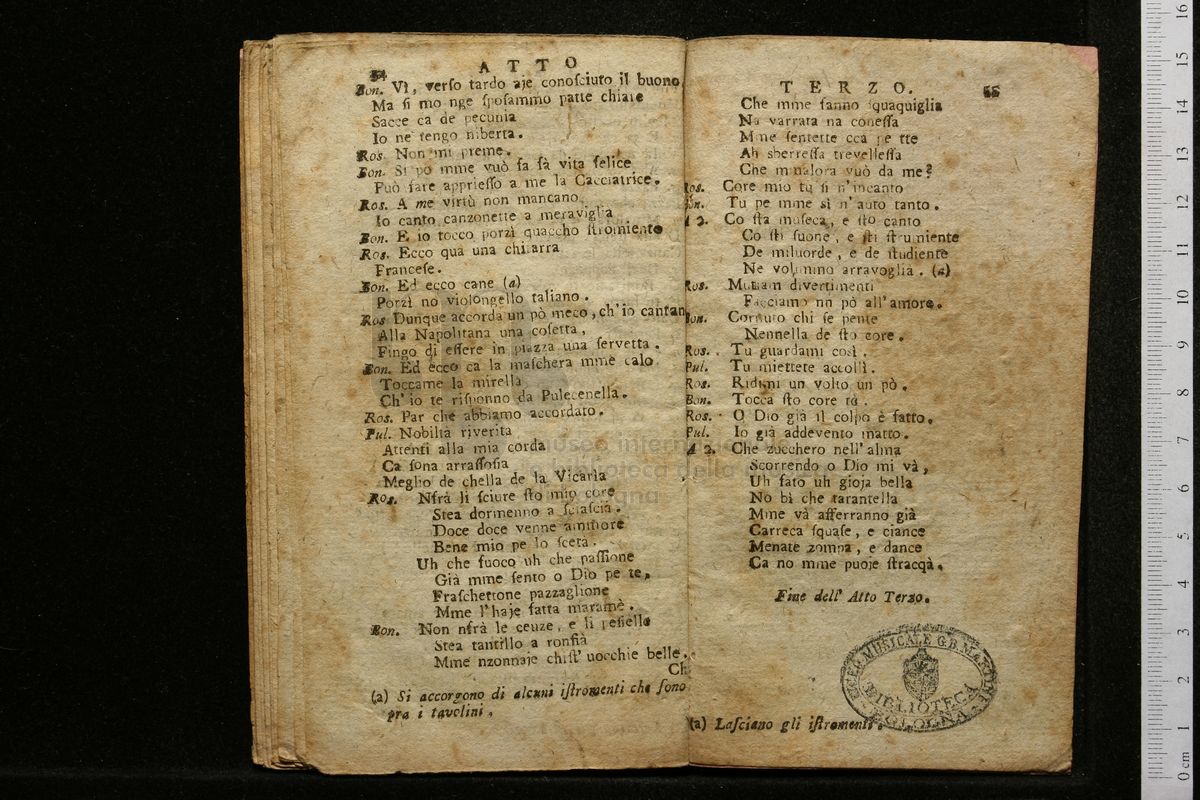 54
ATTO
Bon. Vi, verso tardo aje conosciuto il buono
Ma si mo nge sposammo patte chiare
Sacce ca de pecunia
Io ne tengo niberta.
Ros. Non mi preme.
Bon. Si po mme vuò fa fà vita felice
Può fare appriesso a me la Cacciatrice.
Ros. A me virtù non mancano
Io canto canzonette a meraviglia
Bon. E io tocco porzì quaccho stromiento
Ros. Ecco quà una chitarra
Francese.
Bon. Ed ecco cane (a)
Porzì no violongello taliano.
Ros Dunque accorda un pò meco, ch'io cantan
Alla Napolitana una cosetta,
Fingo di essere in piazza una servetta.
Bon. Ed ecco ca la maschera mme calo
Toccame la mirella
Ch'io te risponno da Pulecenella.
Ros. Par che abbiamo accordato.
Pul. Nobiltà riverita
Attenti alla mia corda
Ca sona arrassosia
Meglio de chella de la Vicaria
Ros. Nfrà li sciure sto mio core
Stea dormenno a sciascia.
Doce doce venne ammore
Bene mio pe lo scetà.
Uh che fuoco uh che passione
Già mme sento o Dio pe te,
Fraschettone pazzaglione
Mme l'haje fatta maramè.
Bon. Non nfrà le ceuze, e li pesielle
Stea tantillo a ronfià
Mme nzonnaje chist' uocchie belle,
Ch
(a) Si accorgono di alcuni istromenti che sono
pra i tavolini.
TERZO.
55
Che mme fanno squaquiglià
Na varrata na conessa
Mme sentette ccà pe tte
Ah sberressa trevellessa
Che mmalora vuò da me?
Ros. Core mio tu si n'incanto
Bon. Tu pe mme si n'auto tanto.
A 2. Co sta museca, e sto canto
Co sti suone, e sti strumiente
De miluorde, e de studiente
Ne volimmo arravoglià. (a)
Ros. Mutiam divertimenti
Facciamo un pò all'amore.
Bon. Cornuto chi se pente
Nennella de sto core.
Ros. Tu guardami così.
Pul. Tu miettete accollì.
Ros. Ridimi un volto un pò.
Bon. Tocca sto core tù.
Ros. O Dio già il colpo è fatto.
Pul. Io già addevento matto.
A 2. Che zucchero nell'alma
Scorrendo o Dio mi và,
Uh fato uh gioja bella
No bì che tarantella
Mme và afferranno già
Carreca squase, e ciance
Menate zompa, e dance
Ca no mme puoje stracqà.
Fine dell' Atto Terzo.
(a) Lasciano gli istromenti.
LICEO MUSICALE G.B. MARTINI
BIBLIOTECA
BOLOGNA
museo internazionale
e biblioteca della musica
bologna
0 cm 1 2 3 4 5 6 7 8 9 10 11 12 13 14 15 16